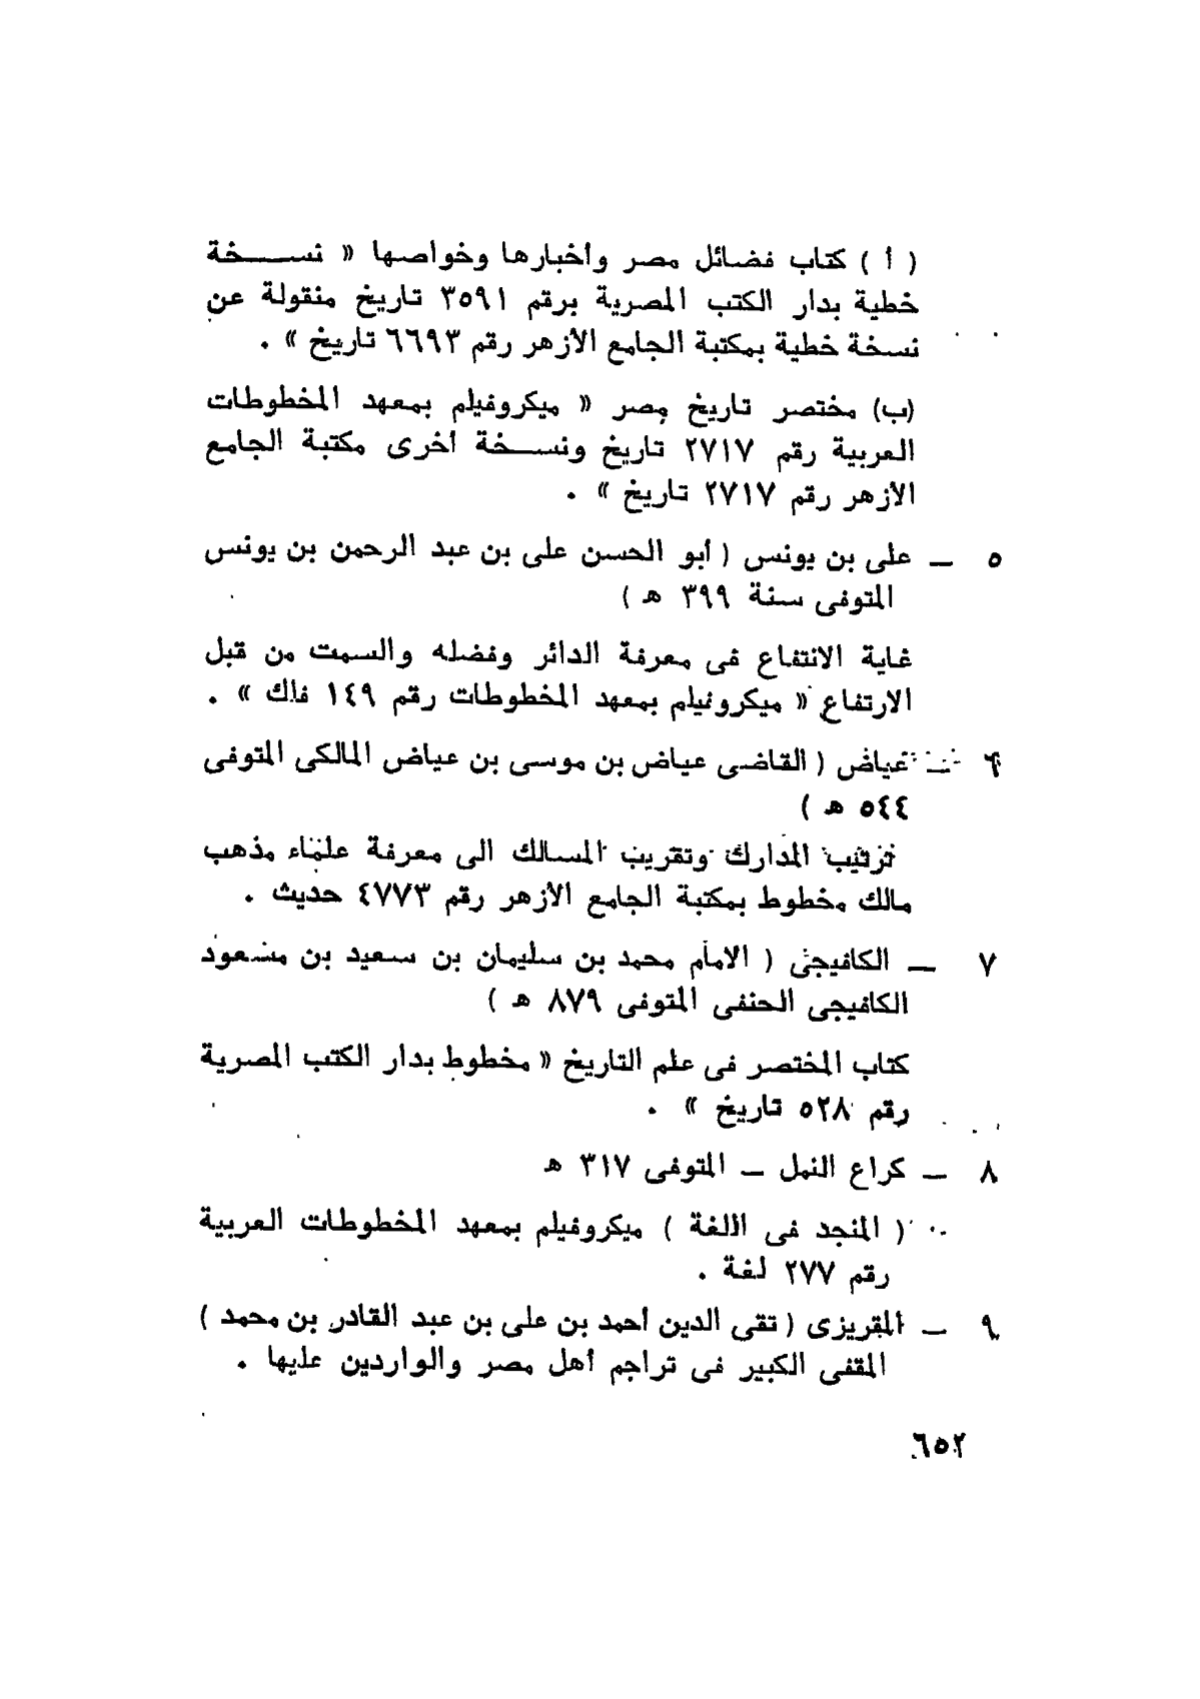 ( أ ) كتاب فضائل مصر وأخبارها وخواصها « نسخة
خطية بدار الكتب المصرية برقم ٣٥٩١ تاريخ منقولة عن
نسخة خطية بمكتبة الجامع الأزهر رقم ٦٦٩٣ تاريخ » .
(ب) مختصر تاريخ مصر « ميكروفيلم بمعهد المخطوطات
العربية رقم ٢٧١٧ تاريخ ونسخة أخرى مكتبة الجامع
الازهر رقم ٢٧١٧ تاريخ » .
٥ — على بن يونس ( أبو الحسن على بن عبد الرحمن بن يونس
المتوفى سنة ٣٩٩ هـ )
غاية الانتفاع فى معرفة الدائر وفضله والسمت من قبل
الارتفاع « ميكروفيلم بمعهد المخطوطات رقم ١٤٩ فلك » .
٦ — عياض ( القاضى عياض بن موسى بن عياض المالكى المتوفى
٥٤٤ هـ )
ترتيب المدارك وتقريب المسالك الى معرفة علماء مذهب
مالك مخطوط بمكتبة الجامع الأزهر رقم ٤٧٧٣ حديث .
٧ — الكافيجى ( الامام محمد بن سليمان بن سعيد بن مسعود
الكافيجى الحنفى المتوفى ٨٧٩ هـ )
كتاب المختصر فى علم التاريخ « مخطوط بدار الكتب المصرية
رقم ٥٢٨ تاريخ » .
٨ — كراع النمل — المتوفى ٣١٧ هـ
( المنجد فى اللغة ) ميكروفيلم بمعهد المخطوطات العربية
رقم ٢٧٧ لغة .
٩ — المقريزى ( تقى الدين أحمد بن على بن عبد القادر بن محمد )
المقفى الكبير فى تراجم أهل مصر والواردين عليها .
٦٥٢